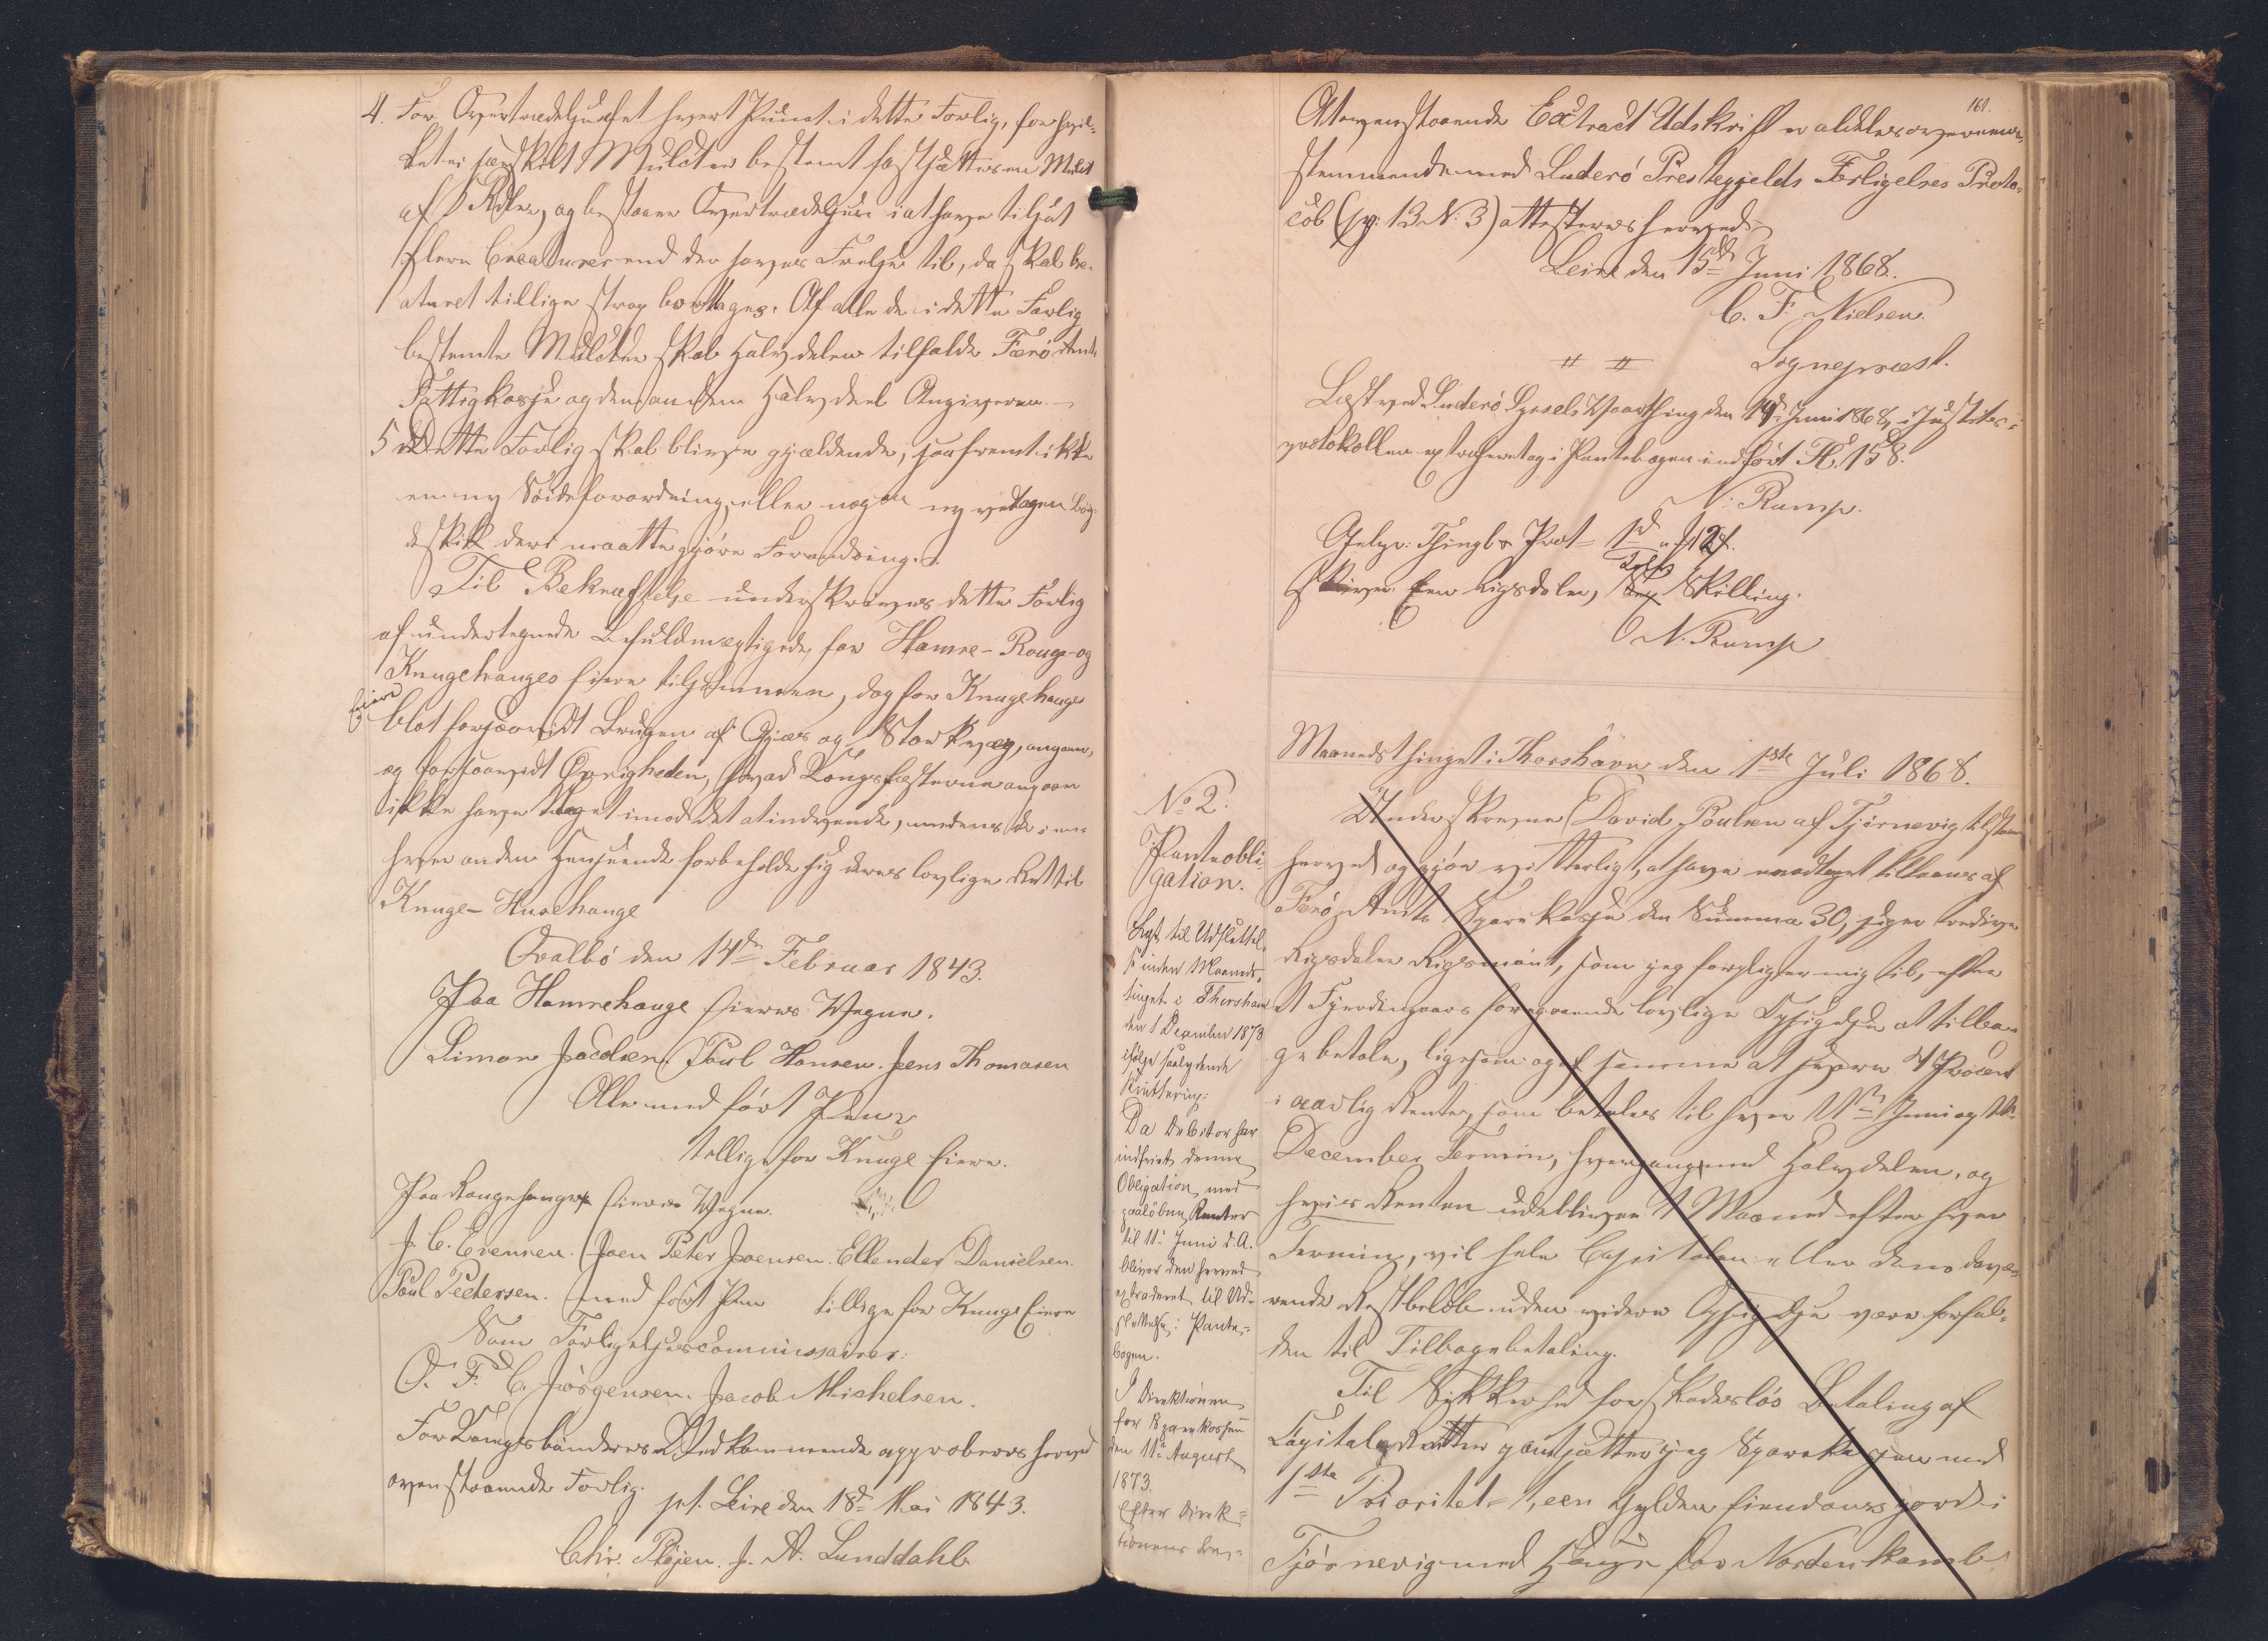 4. For Overtrædelsen af hvert Punct i dette Forlig, for hvil-
ket ei særskilt Mulct er bestemt fastsættes en Mulct
af 1 Rdler, og bestaaer Overtrædelsen i at have tilsat
flere Creaturer end der haves Frelse til, da skal Cre-
aturet tillige strax borttages. Af alle de i dette Forlig
bestemte Mulcter skal Halvdelen tilfalde Færö Amts
Fattigkasse og den anden Halvdeel Angiveren. —
5 Dette Forlig skal blive gjældende, saafremt ikke
en ny Söideforordning eller nogen ny vedtagen Byg-
deskik deri maatte gjöre Forandring.
Til Bekræftelse underskrives dette Forlig
af undertegnede Befuldmægtigede for Hamre- Rouge- og
Knugehauges Eiere tilsammen, dog for Knugehauges
Eiere
blot forsaavidt Brugen af Gjæs og Storkvæg, angaaer,
og forsaavidt Øvrigheden, hvad Kongsfæsterne angaaer
ikke have Noget imod det at indvende, medens de i en-
hver anden Henseende forbeholde sig deres lovlige Ret til
Knuge- Husehauge
Qvalbö den 14de Februar 1843.
Paa Hamrehauge Eieres Vegne.
Simon Jacobsen. Poul Hansen. Jens Thomasen
Alle med fört Pen
tillige for Knuge Eiere.
Paa Rougehauges Eieres Vegne.
J. C. Evensen. Joen Peter Joensen. Ellendes Danielsen.
Poul Pedersen. med fört Pen tillige for Knuge Eiere
Som Forligelsescommissairer:
O. F. C. Jörgensen. Jacob Michelsen.
For Kongsböndernes Vedkommende approberes herved
ovenstaaende Forlig.
pt. Leire den 18de Mai 1843.
Chr. Plöjen. J. A. Lunddahl
161.
At ovenstaaende Extract Udskrift er aldeles overeens-
stemmende med Suderö Prestegjelds Forligelses Proto-
col (pg: 13 N: 3) attesteres herved
Leire den 15de Juni 1868.
C. F. Nielsen.
" " Sognepræst.
Læst ved Suderö Syssels Vaarthing den 19de Juni 1868, i Justits-
protokollen extraheret og i Pantebogen indfört Fl. 158.
N: Rump.
Gebyr: Thingl & Prot= 1d " 12 s.
Tolv
skriver Een Rigsdaler, Sex Skilling.
N. Rump
Maanedsthinget i Thorshavn den 1ste Juli 1868.
No 2.
Panteobli-
gation.
Lyst til Udslettel-
se inden Maaneds-
tinget i Thorshavn
den 1 December 1873
ifölge saalydende
Kvittering:
Da Debitor har
indfriet denne
Obligation med
paalöbne Renter
til 11te Juni d. A.
bliver den herved
extraderet til Ud-
slettelse i Pante-
bogen.
I Direktionen
for Sparekassen
den 11te August
1873.
Efter Direk-
tionens
Underskrevne David Poulsen af Tjörnevig tilstaaer
herved og gjör vitterligt, at have modtaget tillaans af
Færö Amts Sparekasse den Summa 30, siger tredive
Rigsdaler Rigsmönt, som jeg forpligter mig til, efter
et Fjerdingaars foregaaende lovlige Opsigelse at tilba-
ge betale, ligesom og af samme at svare 4 Procent
i aarlig Rente, som betales til hver 11te Juni og 11te
December Termin, hvergang med Halvdelen, og
hvis Renten udebliver 1 Maaned efter hver
Termin, vil hele Capitalen eller dens davæ-
rende Restbelöb uden videre Opsigelse være forfal-
den til Tilbagebetaling.
Til Sikkerhed for skadeslös Betaling af
Capital & Renter pantsætter jeg Sparekassen med
1ste Prioritet 1, een Gylden Eiendomsjord i
Tjörnevig med Hauge for Nordenkamb